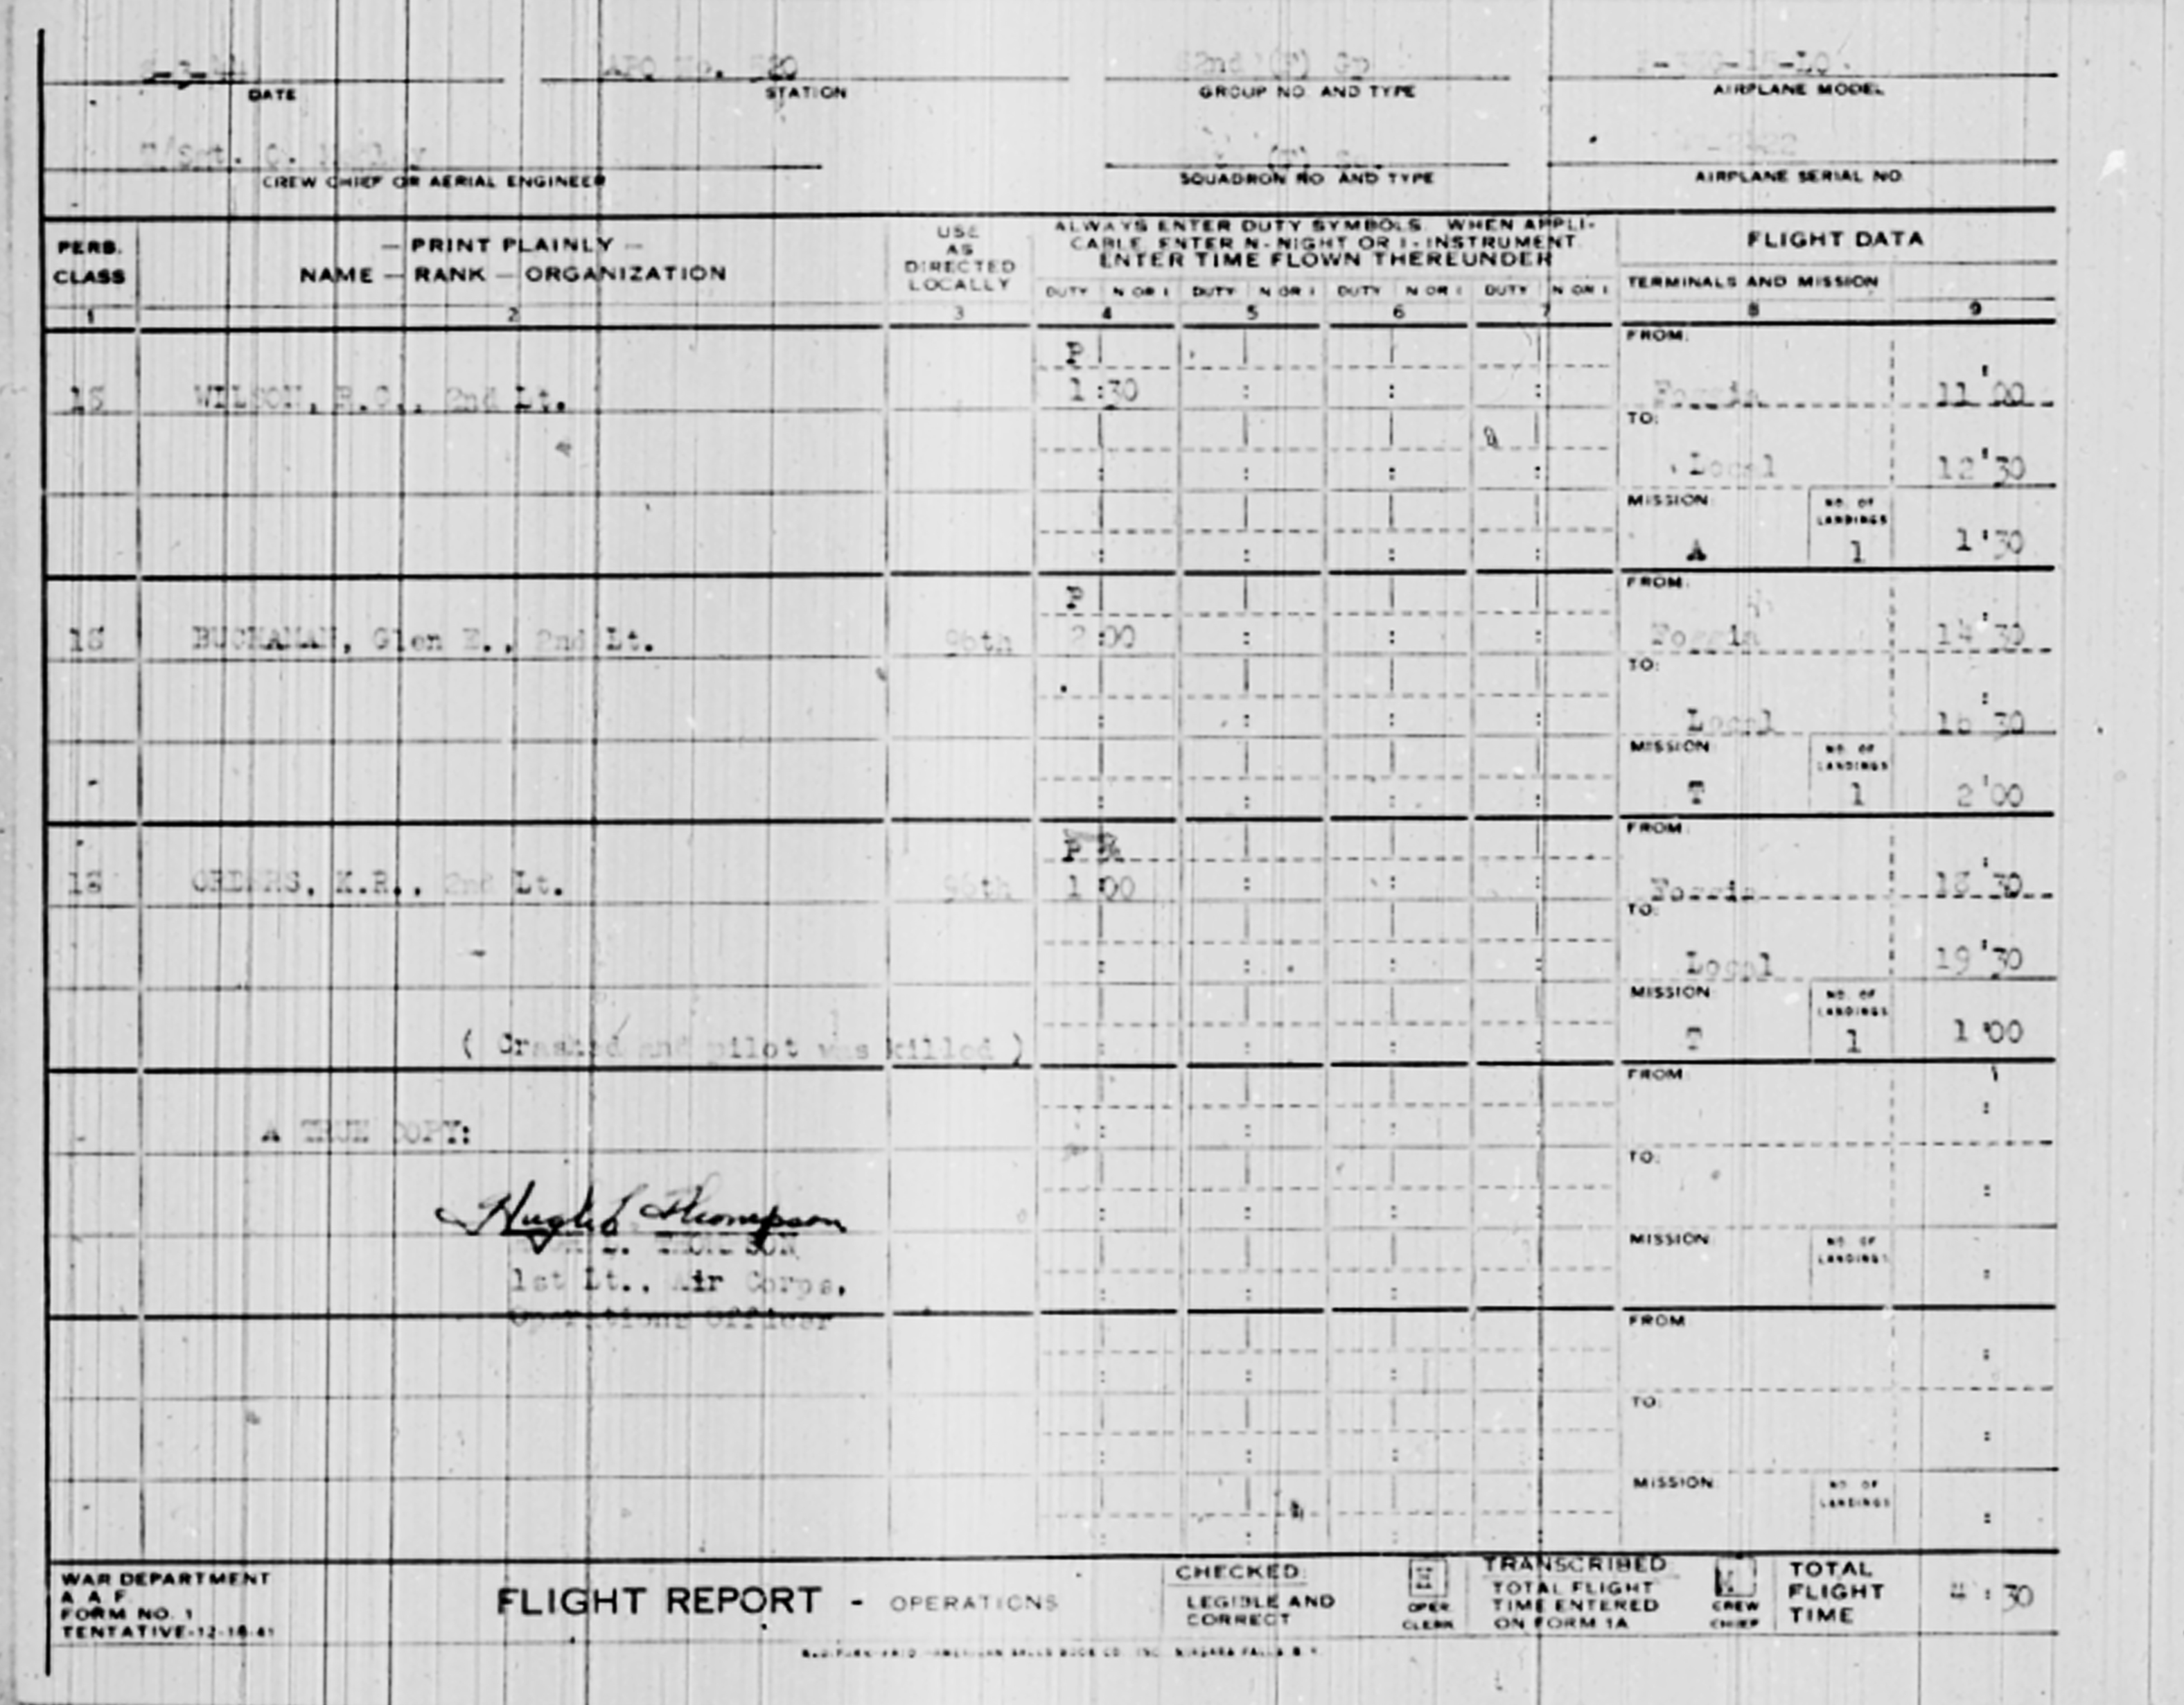 DATE
STATION
GROUP NO. AND TYPE
AIRPLANE MODEL
CREW CHIEF OR AERIAL ENGINEER
SQUADRON NO. AND TYPE
AIRPLANE SERIAL NO.
PERS. CLASS
1
— PRINT PLAINLY —
NAME — RANK — ORGANIZATION
2
USE AS DIRECTED LOCALLY
3
ALWAYS ENTER DUTY SYMBOLS. WHEN APPLI-
CABLE, ENTER N-NIGHT OR I-INSTRUMENT.
ENTER TIME FLOWN THEREUNDER
DUTY N OR I DUTY N OR I DUTY N OR I DUTY N OR I
4 5 6 7
FLIGHT DATA
TERMINALS AND MISSION
8 9
18 WILSON, R.C., 2nd Lt.
P
1:30
FROM:
11'00
TO:
Local 12'30
MISSION NO. OF LANDINGS
A 1 1'30
18 BUCHANAN, Glen E., 2nd Lt. 96th
P
2:00
FROM:
14'30
TO:
Local 16'30
MISSION NO. OF LANDINGS
T 1 2'00
18 2nd Lt. 96th
P
1:00
FROM:
18'30
TO:
Local 19'30
MISSION NO. OF LANDINGS
T 1 1'00
( Crashed and pilot was killed )
FROM
TO:
MISSION NO. OF LANDINGS
A TRUE COPY:
Thompson
1st Lt., Air Corps,
Operations Officer
FROM
TO:
MISSION NO. OF LANDINGS
WAR DEPARTMENT
A A F
FORM NO. 1
TENTATIVE-12-18-41
FLIGHT REPORT - OPERATIONS
CHECKED:
LEGIBLE AND CORRECT
OPER. CLERK
TRANSCRIBED
TOTAL FLIGHT TIME ENTERED ON FORM 1A
CREW CHIEF
TOTAL FLIGHT TIME
4:30